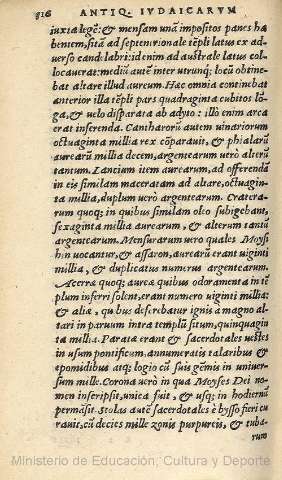 816 ANTIQ. IVDAICARVM
iuxta legē: & mensam unā impositos panes ha
bentem, sitā ad septentrionale tēpli latus ex ad-
uerso candelabri: id enim ad australe latus col-
locauerat: mediū autē inter utrunq; locū obtine-
bat altare illud aureum. Hæc omnia continebat
anterior illa tēpli pars quadraginta cubitos lōn-
ga, & uelo disparata ab adyto: illò enim arca
erat inserenda. Cantharorū autem uinariorum
octuaginta millia rex cōparauit, & phialarū
aurearū millia decem, argentearum uerò alterū
tantum. Lancium item aurearum, ad offerendā
in eis similam maceratam ad altare, octuagin-
ta millia, duplum uerò argentearum. Cratera-
rum quoq; in quibus similam oleo subigebant,
sexaginta millia aurearum, & alterum tantū
argentearum. Mensurarum uero quales Moysi
hin uocantur, & assaron, aurearū erant uiginti
millia, & duplicatus numerus argentearum.
Acerræ quoq; aureæ quibus odoramenta in tē
plum inferri solent, erant numero uiginti millia:
& aliæ, quibus deferebatur ignis a magno al-
tari in paruum intra templū situm, quinquagin
ta millia. Paratæ erant & sacerdotales uestes
in usum pontificum, annumeratis talaribus &
epomidibus atq; logio cū suis gemis in uniuer-
sum mille. Corona uerò in qua Moyses Dei no-
men inscripsit, unica fuit, & usq; in hodiernū
permāsit. Stolas autē sacerdotales è bysso fieri cu
rauit, cū decies mille zonis purpureis, & tuba-
rum
Ministerio de Educación, Cultura y Deporte